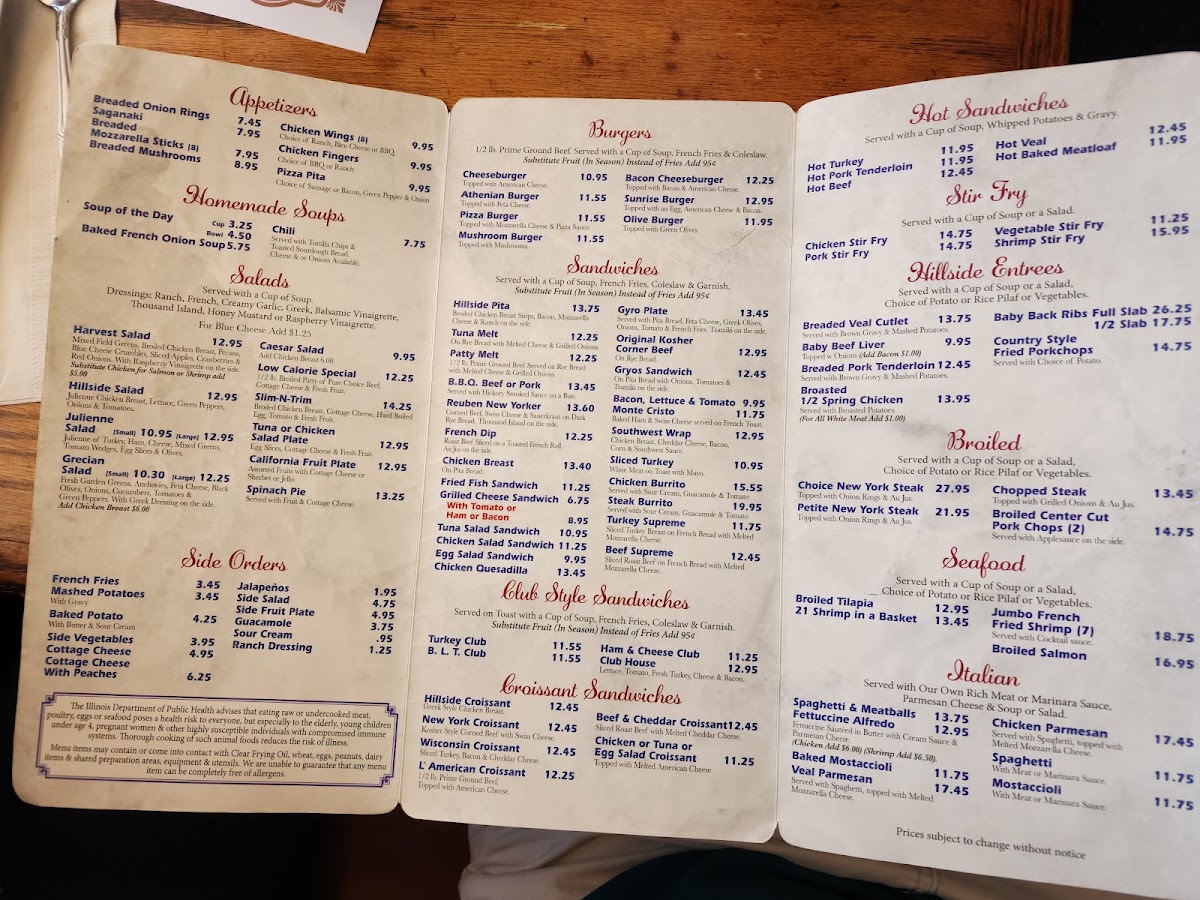 Appetizers
Breaded Onion Rings 7.45
Saganaki 7.95
Breaded
Mozzarella Sticks (8) 7.95
Breaded Mushrooms 8.95
Chicken Wings (8) 9.95
Choice of Ranch, Bleu Cheese or BBQ
Chicken Fingers 9.95
Choice of BBQ or Ranch
Pizza Pita 9.95
Choice of Sausage or Bacon, Green Pepper & Onion
Homemade Soups
Soup of the Day Cup 3.25
Bowl 4.50
Baked French Onion Soup 5.75
Chili 7.75
Served with Tortilla Chips &
Toasted Sourdough Bread,
Cheese & or Onions Available.
Salads
Served with a Cup of Soup.
Dressings: Ranch, French, Creamy Garlic, Greek, Balsamic Vinaigrette,
Thousand Island, Honey Mustard or Raspberry Vinaigrette.
For Blue Cheese Add $1.25
Harvest Salad 12.95
Mixed Field Greens, Broiled Chicken Breast, Pecans,
Blue Cheese Crumbles, Sliced Apples, Cranberries &
Red Onions. With Raspberry Vinaigrette on the side.
Substitute Chicken for Salmon or Shrimp add
$5.00
Hillside Salad 12.95
Julienne Chicken Breast, Lettuce, Green Peppers,
Onions & Tomatoes.
Julienne
Salad (Small) 10.95 (Large) 12.95
Julienne of Turkey, Ham, Cheese, Mixed Greens,
Tomato Wedges, Egg Slices & Olives.
Grecian
Salad (Small) 10.30 (Large) 12.25
Fresh Garden Greens, Anchovies, Feta Cheese, Black
Olives, Onions, Cucumbers, Tomatoes &
Green Peppers, With Greek Dressing on the side.
Add Chicken Breast $6.00
Caesar Salad 9.95
Add Chicken Breast 6.00
Low Calorie Special 12.25
1/2 lb. Broiled Patty of Pure Choice Beef,
Cottage Cheese & Fresh Fruit.
Slim-N-Trim 14.25
Broiled Chicken Breast, Cottage Cheese, Hard Boiled
Egg, Tomato & Fresh Fruit.
Tuna or Chicken
Salad Plate 12.95
Egg Slices, Cottage Cheese & Fresh Fruit.
California Fruit Plate 12.95
Assorted Fruits with Cottage Cheese or
Sherbet or Jello.
Spinach Pie 13.25
Served with Fruit & Cottage Cheese.
Side Orders
French Fries 3.45
Mashed Potatoes 3.45
With Gravy
Baked Potato 4.25
With Butter & Sour Cream
Side Vegetables 3.95
Cottage Cheese 4.95
Cottage Cheese
With Peaches 6.25
Jalapeños 1.95
Side Salad 4.75
Side Fruit Plate 4.95
Guacamole 3.75
Sour Cream .95
Ranch Dressing 1.25
The Illinois Department of Public Health advises that eating raw or undercooked meat,
poultry, eggs or seafood poses a health risk to everyone, but especially to the elderly, young children
under age 4, pregnant women & other highly susceptible individuals with compromised immune
systems. Thorough cooking of such animal foods reduces the risk of illness.
Menu items may contain or come into contact with Clear Frying Oil, wheat, eggs, peanuts, dairy
items & shared preparation areas, equipment & utensils. We are unable to guarantee that any menu
item can be completely free of allergens.
Burgers
1/2 lb. Prime Ground Beef. Served with a Cup of Soup, French Fries & Coleslaw.
Substitute Fruit (In Season) Instead of Fries Add 95¢
Cheeseburger 10.95
Topped with American Cheese.
Athenian Burger 11.55
Topped with Feta Cheese.
Pizza Burger 11.55
Topped with Mozzarella Cheese & Pizza Sauce.
Mushroom Burger 11.55
Topped with Mushrooms.
Bacon Cheeseburger 12.25
Topped with Bacon & American Cheese.
Sunrise Burger 12.95
Topped with an Egg, American Cheese & Bacon.
Olive Burger 11.95
Topped with Green Olives.
Sandwiches
Served with a Cup of Soup, French Fries, Coleslaw & Garnish.
Substitute Fruit (In Season) Instead of Fries Add 95¢
Hillside Pita 13.75
Broiled Chicken Breast Strips, Bacon, Mozzarella
Cheese & Ranch on the side.
Tuna Melt 12.25
On Rye Bread with Melted Cheese & Grilled Onions.
Patty Melt 12.25
1/2 lb. Prime Ground Beef Served on Rye Bread
with Melted Cheese & Grilled Onions.
B.B.Q. Beef or Pork 13.45
Served with Hickory Smoked Sauce on a Bun.
Reuben New Yorker 13.60
Corned Beef, Swiss Cheese & Sauerkraut on Dark
Rye Bread, Thousand Island on the side.
French Dip 12.25
Roast Beef Sliced on a Toasted French Roll,
Au Jus on the side.
Chicken Breast 13.40
On Pita Bread.
Fried Fish Sandwich 11.25
Grilled Cheese Sandwich 6.75
With Tomato or
Ham or Bacon 8.95
Tuna Salad Sandwich 10.95
Chicken Salad Sandwich 11.25
Egg Salad Sandwich 9.95
Chicken Quesadilla 13.45
Gyro Plate 13.45
Served with Pita Bread, Feta Cheese, Greek Olives,
Onions, Tomato & French Fries. Tzatziki on the side.
Original Kosher
Corner Beef 12.95
On Rye Bread.
Gryos Sandwich 12.45
On Pita Bread with Onions, Tomatoes &
Tzatziki on the side.
Bacon, Lettuce & Tomato 9.95
Monte Cristo 11.75
Baked Ham & Swiss Cheese served on French Toast.
Southwest Wrap 12.95
Chicken Breast, Cheddar Cheese, Bacon,
Corn & Southwest Sauce.
Sliced Turkey 10.95
White Meat on Toast with Mayo.
Chicken Burrito 15.55
Served with Sour Cream, Guacamole & Tomato
Steak Burrito 19.95
Served with Sour Cream, Guacamole & Tomato
Turkey Supreme 11.75
Sliced Turkey Breast on French Bread with Melted
Mozzarella Cheese.
Beef Supreme 12.45
Sliced Roast Beef on French Bread with Melted
Mozzarella Cheese.
Club Style Sandwiches
Served on Toast with a Cup of Soup, French Fries, Coleslaw & Garnish.
Substitute Fruit (In Season) Instead of Fries Add 95¢
Turkey Club 11.55
B. L. T. Club 11.55
Ham & Cheese Club 11.25
Club House 12.95
Lettuce, Tomato, Fresh Turkey, Cheese & Bacon.
Croissant Sandwiches
Hillside Croissant 12.45
Greek Style Chicken Breast.
New York Croissant 12.45
Kosher Style Corned Beef with Swiss Cheese.
Wisconsin Croissant 12.45
Sliced Turkey, Bacon & Cheddar Cheese.
L' American Croissant 12.25
1/2 lb. Prime Ground Beef,
Topped with American Cheese.
Beef & Cheddar Croissant 12.45
Sliced Roast Beef with Melted Cheddar Cheese.
Chicken or Tuna or
Egg Salad Croissant 11.25
Topped with Melted American Cheese.
Hot Sandwiches
Served with a Cup of Soup, Whipped Potatoes & Gravy.
Hot Turkey 11.95
Hot Pork Tenderloin 11.95
Hot Beef 12.45
Hot Veal 12.45
Hot Baked Meatloaf 11.95
Stir Fry
Served with a Cup of Soup or a Salad.
Chicken Stir Fry 14.75
Pork Stir Fry 14.75
Vegetable Stir Fry 11.25
Shrimp Stir Fry 15.95
Hillside Entrees
Served with a Cup of Soup or a Salad,
Choice of Potato or Rice Pilaf or Vegetables.
Breaded Veal Cutlet 13.75
Served with Brown Gravy & Mashed Potatoes.
Baby Beef Liver 9.95
Topped w Onions (Add Bacon $1.00)
Breaded Pork Tenderloin 12.45
Served with Brown Gravy & Mashed Potatoes.
Broasted
1/2 Spring Chicken 13.95
Served with Broasted Potatoes.
(For All White Meat Add $1.00)
Baby Back Ribs Full Slab 26.25
1/2 Slab 17.75
Country Style
Fried Porkchops 14.75
Served with Choice of Potato.
Broiled
Served with a Cup of Soup or a Salad,
Choice of Potato or Rice Pilaf or Vegetables.
Choice New York Steak 27.95
Topped with Onion Rings & Au Jus.
Petite New York Steak 21.95
Topped with Onion Rings & Au Jus.
Chopped Steak 13.45
Topped with Grilled Onions & Au Jus.
Broiled Center Cut
Pork Chops (2) 14.75
Served with Applesauce on the side.
Seafood
Served with a Cup of Soup or a Salad,
Choice of Potato or Rice Pilaf or Vegetables.
Broiled Tilapia 12.95
21 Shrimp in a Basket 13.45
Jumbo French
Fried Shrimp (7) 18.75
Served with Cocktail sauce.
Broiled Salmon 16.95
Italian
Served with Our Own Rich Meat or Marinara Sauce,
Parmesan Cheese & Soup or Salad.
Spaghetti & Meatballs 13.75
Fettuccine Alfredo 12.95
Fettuccine Sautéed in Butter with Cream Sauce &
Parmesan Cheese.
(Chicken Add $6.00) (Shrimp Add $6.50).
Baked Mostaccioli 11.75
Veal Parmesan 17.45
Served with Spaghetti, topped with Melted
Mozzarella Cheese.
Chicken Parmesan 17.45
Served with Spaghetti, topped with
Melted Mozzarella Cheese.
Spaghetti 11.75
With Meat or Marinara Sauce.
Mostaccioli 11.75
With Meat or Marinara Sauce.
Prices subject to change without notice